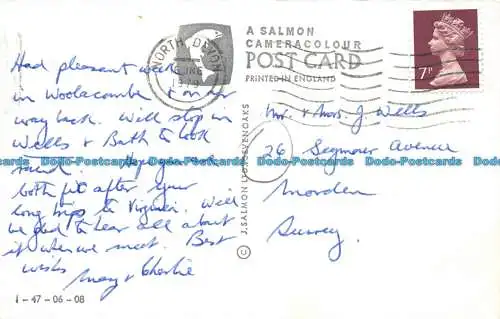 Had pleasant week
in Woolacombe & on our
way back. Will stop in
Wells & Bath to look
round. Hope you're
both fit after your
long trip to Virginia. Will
be glad to hear all about
it when we meet. Best
wishes
May & Charlie
1-47-06-08
NORTH DEVON
JNE
1979
A SALMON
CAMERACOLOUR
POST CARD
PRINTED IN ENGLAND
7P
J. SALMON LTD. SEVENOAKS
Mr. & Mrs. J Wells
26 Seymour Avenue
Morden
Surrey.
Dodo-Postcards.com Dodo-Postcards.com Dodo-Postcards.com Dodo-Postcards.com